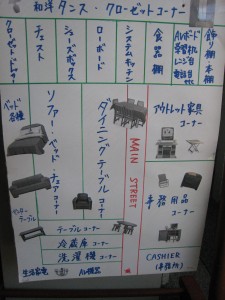 和洋タンス・クローゼットコーナー
飾り棚
本棚
AVボード
電話台
レンジ台
食器棚
システムキッチン
ローボード
シューズボックス
チェスト
クローゼット
ドレッサー
アウトレット家具
コーナー
MAIN STREET
ダイニングテーブルコーナー
ソファーベッドチェアコーナー
ベッド各種
事務用品
コーナー
センターテーブル
テーブルコーナー
冷蔵庫コーナー
洗濯機コーナー
生活家電
AV機器
CASHIER
(事務所)